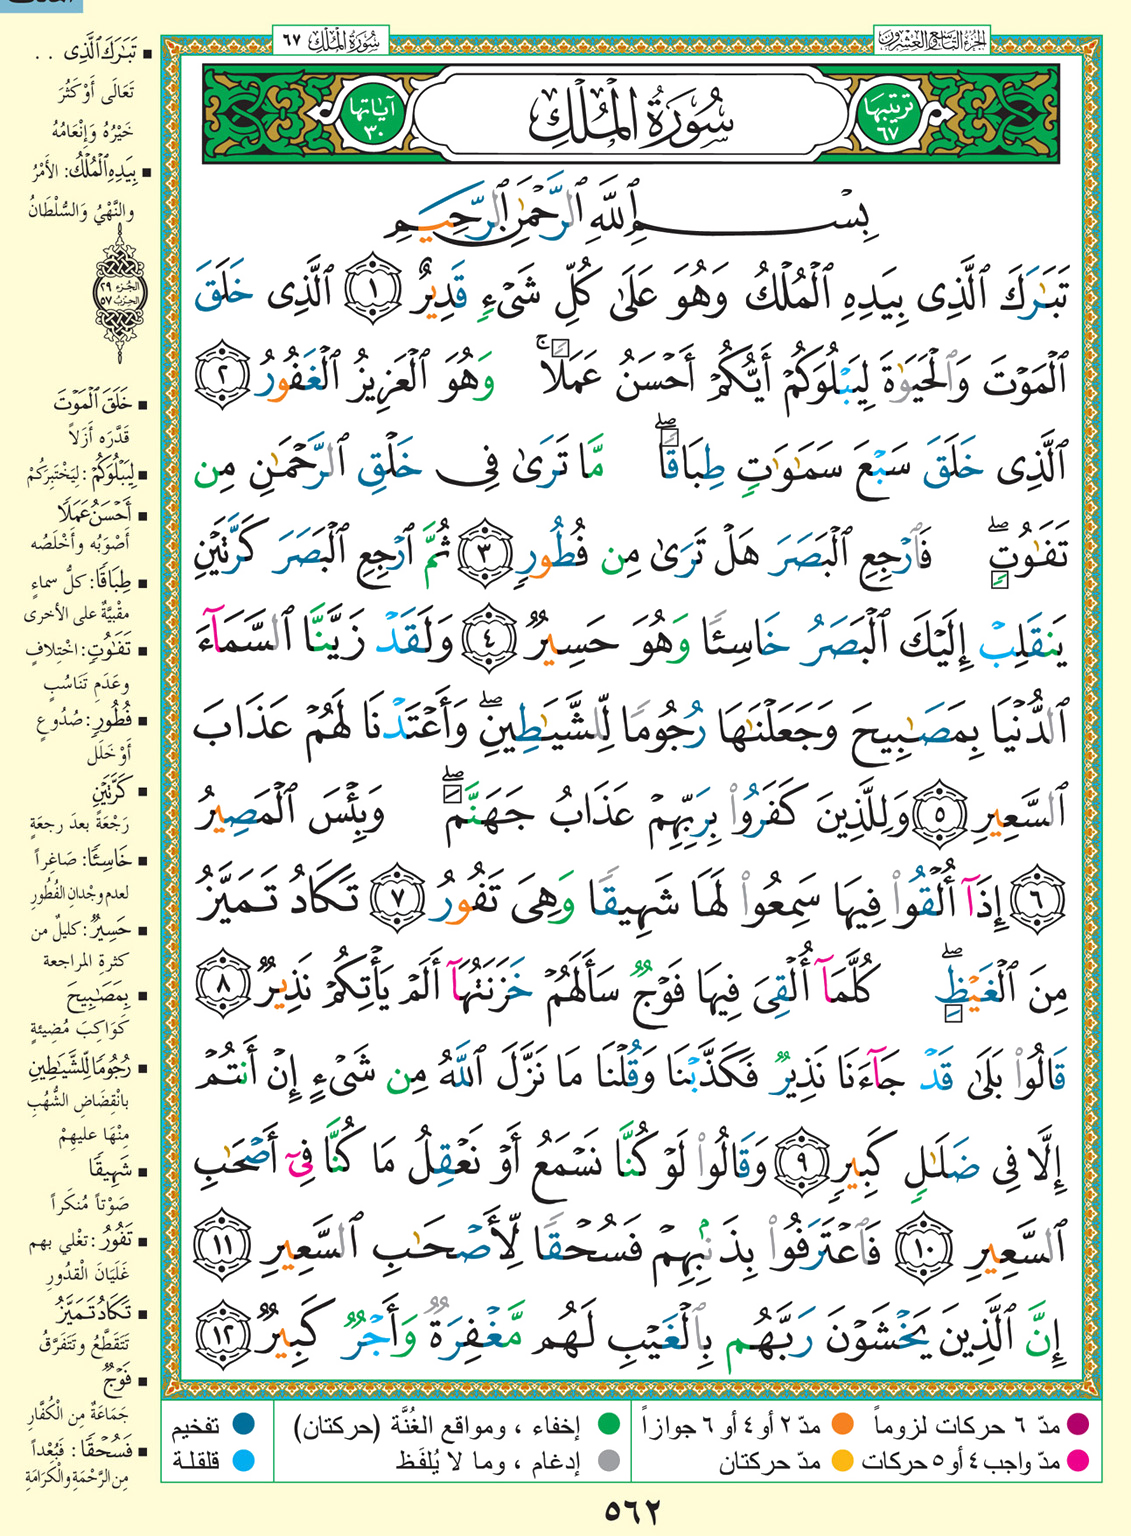 الملك
سُورَةُ المُلْكِ ٦٧
الجزء التاسع والعشرون
ترتيبها ٦٧
سُورَةُ الْمُلْكِ
آياتها ٣٠
بِسْمِ ٱللَّهِ ٱلرَّحْمَٰنِ ٱلرَّحِيمِ
تَبَٰرَكَ ٱلَّذِى بِيَدِهِ ٱلْمُلْكُ وَهُوَ عَلَىٰ كُلِّ شَىْءٍ قَدِيرٌ ١ ٱلَّذِى خَلَقَ
ٱلْمَوْتَ وَٱلْحَيَوٰةَ لِيَبْلُوَكُمْ أَيُّكُمْ أَحْسَنُ عَمَلًا ۚ وَهُوَ ٱلْعَزِيزُ ٱلْغَفُورُ ٢
ٱلَّذِى خَلَقَ سَبْعَ سَمَٰوَٰتٍ طِبَاقًا ۖ مَّا تَرَىٰ فِى خَلْقِ ٱلرَّحْمَٰنِ مِن
تَفَٰوُتٍ ۖ فَٱرْجِعِ ٱلْبَصَرَ هَلْ تَرَىٰ مِن فُطُورٍ ٣ ثُمَّ ٱرْجِعِ ٱلْبَصَرَ كَرَّتَيْنِ
يَنقَلِبْ إِلَيْكَ ٱلْبَصَرُ خَاسِئًا وَهُوَ حَسِيرٌ ٤ وَلَقَدْ زَيَّنَّا ٱلسَّمَآءَ
ٱلدُّنْيَا بِمَصَٰبِيحَ وَجَعَلْنَٰهَا رُجُومًا لِّلشَّيَٰطِينِ ۖ وَأَعْتَدْنَا لَهُمْ عَذَابَ
ٱلسَّعِيرِ ٥ وَلِلَّذِينَ كَفَرُوا۟ بِرَبِّهِمْ عَذَابُ جَهَنَّمَ ۖ وَبِئْسَ ٱلْمَصِيرُ
٦ إِذَآ أُلْقُوا۟ فِيهَا سَمِعُوا۟ لَهَا شَهِيقًا وَهِىَ تَفُورُ ٧ تَكَادُ تَمَيَّزُ
مِنَ ٱلْغَيْظِ ۖ كُلَّمَآ أُلْقِىَ فِيهَا فَوْجٌ سَأَلَهُمْ خَزَنَتُهَآ أَلَمْ يَأْتِكُمْ نَذِيرٌ ٨
قَالُوا۟ بَلَىٰ قَدْ جَآءَنَا نَذِيرٌ فَكَذَّبْنَا وَقُلْنَا مَا نَزَّلَ ٱللَّهُ مِن شَىْءٍ إِنْ أَنتُمْ
إِلَّا فِى ضَلَٰلٍ كَبِيرٍ ٩ وَقَالُوا۟ لَوْ كُنَّا نَسْمَعُ أَوْ نَعْقِلُ مَا كُنَّا فِىٓ أَصْحَٰبِ
ٱلسَّعِيرِ ١٠ فَٱعْتَرَفُوا۟ بِذَنۢبِهِمْ فَسُحْقًا لِّأَصْحَٰبِ ٱلسَّعِيرِ ١١
إِنَّ ٱلَّذِينَ يَخْشَوْنَ رَبَّهُم بِٱلْغَيْبِ لَهُم مَّغْفِرَةٌ وَأَجْرٌ كَبِيرٌ ١٢
■ تَبَٰرَكَ ٱلَّذِى ..
تَعَالَى أَوْ كَثُرَ
خَيْرُهُ وَإِنْعَامُهُ
■ بِيَدِهِ ٱلْمُلْكُ: الأَمْرُ
والنَّهْيُ وَالسُّلْطَانُ
الجزء ٢٩
الحزب ٥٧
■ خَلَقَ ٱلْمَوْتَ
قَدَّرَه أَزَلاً
■ لِيَبْلُوَكُمْ: لِيَخْتَبِرَكُمْ
■ أَحْسَنُ عَمَلًا
أَصْوَبُه وأَخْلَصُه
■ طِبَاقًا: كلُّ سماءٍ
مقْبيَّةٌ على الأخرى
■ تَفَٰوُتٍ: اخْتِلافٍ
وعَدَمِ تَنَاسُبٍ
■ فُطُورٍ: صُدُوعٍ
أَوْ خَلَلٍ
■ كَرَّتَيْنِ
رَجْعَةً بعدَ رجعَةٍ
■ خَاسِئًا: صَاغِراً
لعدم وجْدانِ الفُطُورِ
■ حَسِيرٌ: كليلٌ من
كثرةِ المراجعة
■ بِمَصَٰبِيحَ
كَوَاكِبَ مُضِيئةٍ
■ رُجُومًا لِّلشَّيَٰطِينِ
بانْقِضَاضِ الشُّهُبِ
مِنْهَا عليهِمْ
■ شَهِيقًا
صَوْتاً مُنكَراً
■ تَفُورُ: تغْلي بهم
غَلَيَانَ الْقدُورِ
■ تَكَادُ تَمَيَّزُ
تَتَقَطَّعُ وتَتَفَرَّقُ
■ فَوْجٌ
جَمَاعَةٌ مِن الْكُفَّارِ
■ فَسُحْقًا: فَبُعْداً
مِن الرَّحْمَةِ والْكَرَامَةِ
مدّ ٦ حركات لزوماً
مدّ ٢ أو ٤ أو ٦ جوازاً
إخفاء ، ومواقع الغُنَّة (حركتان)
تفخيم
مدّ واجب ٤ أو ٥ حركات
مدّ حركتان
إدغام ، وما لا يُلفَظ
قلقلة
٥٦٢